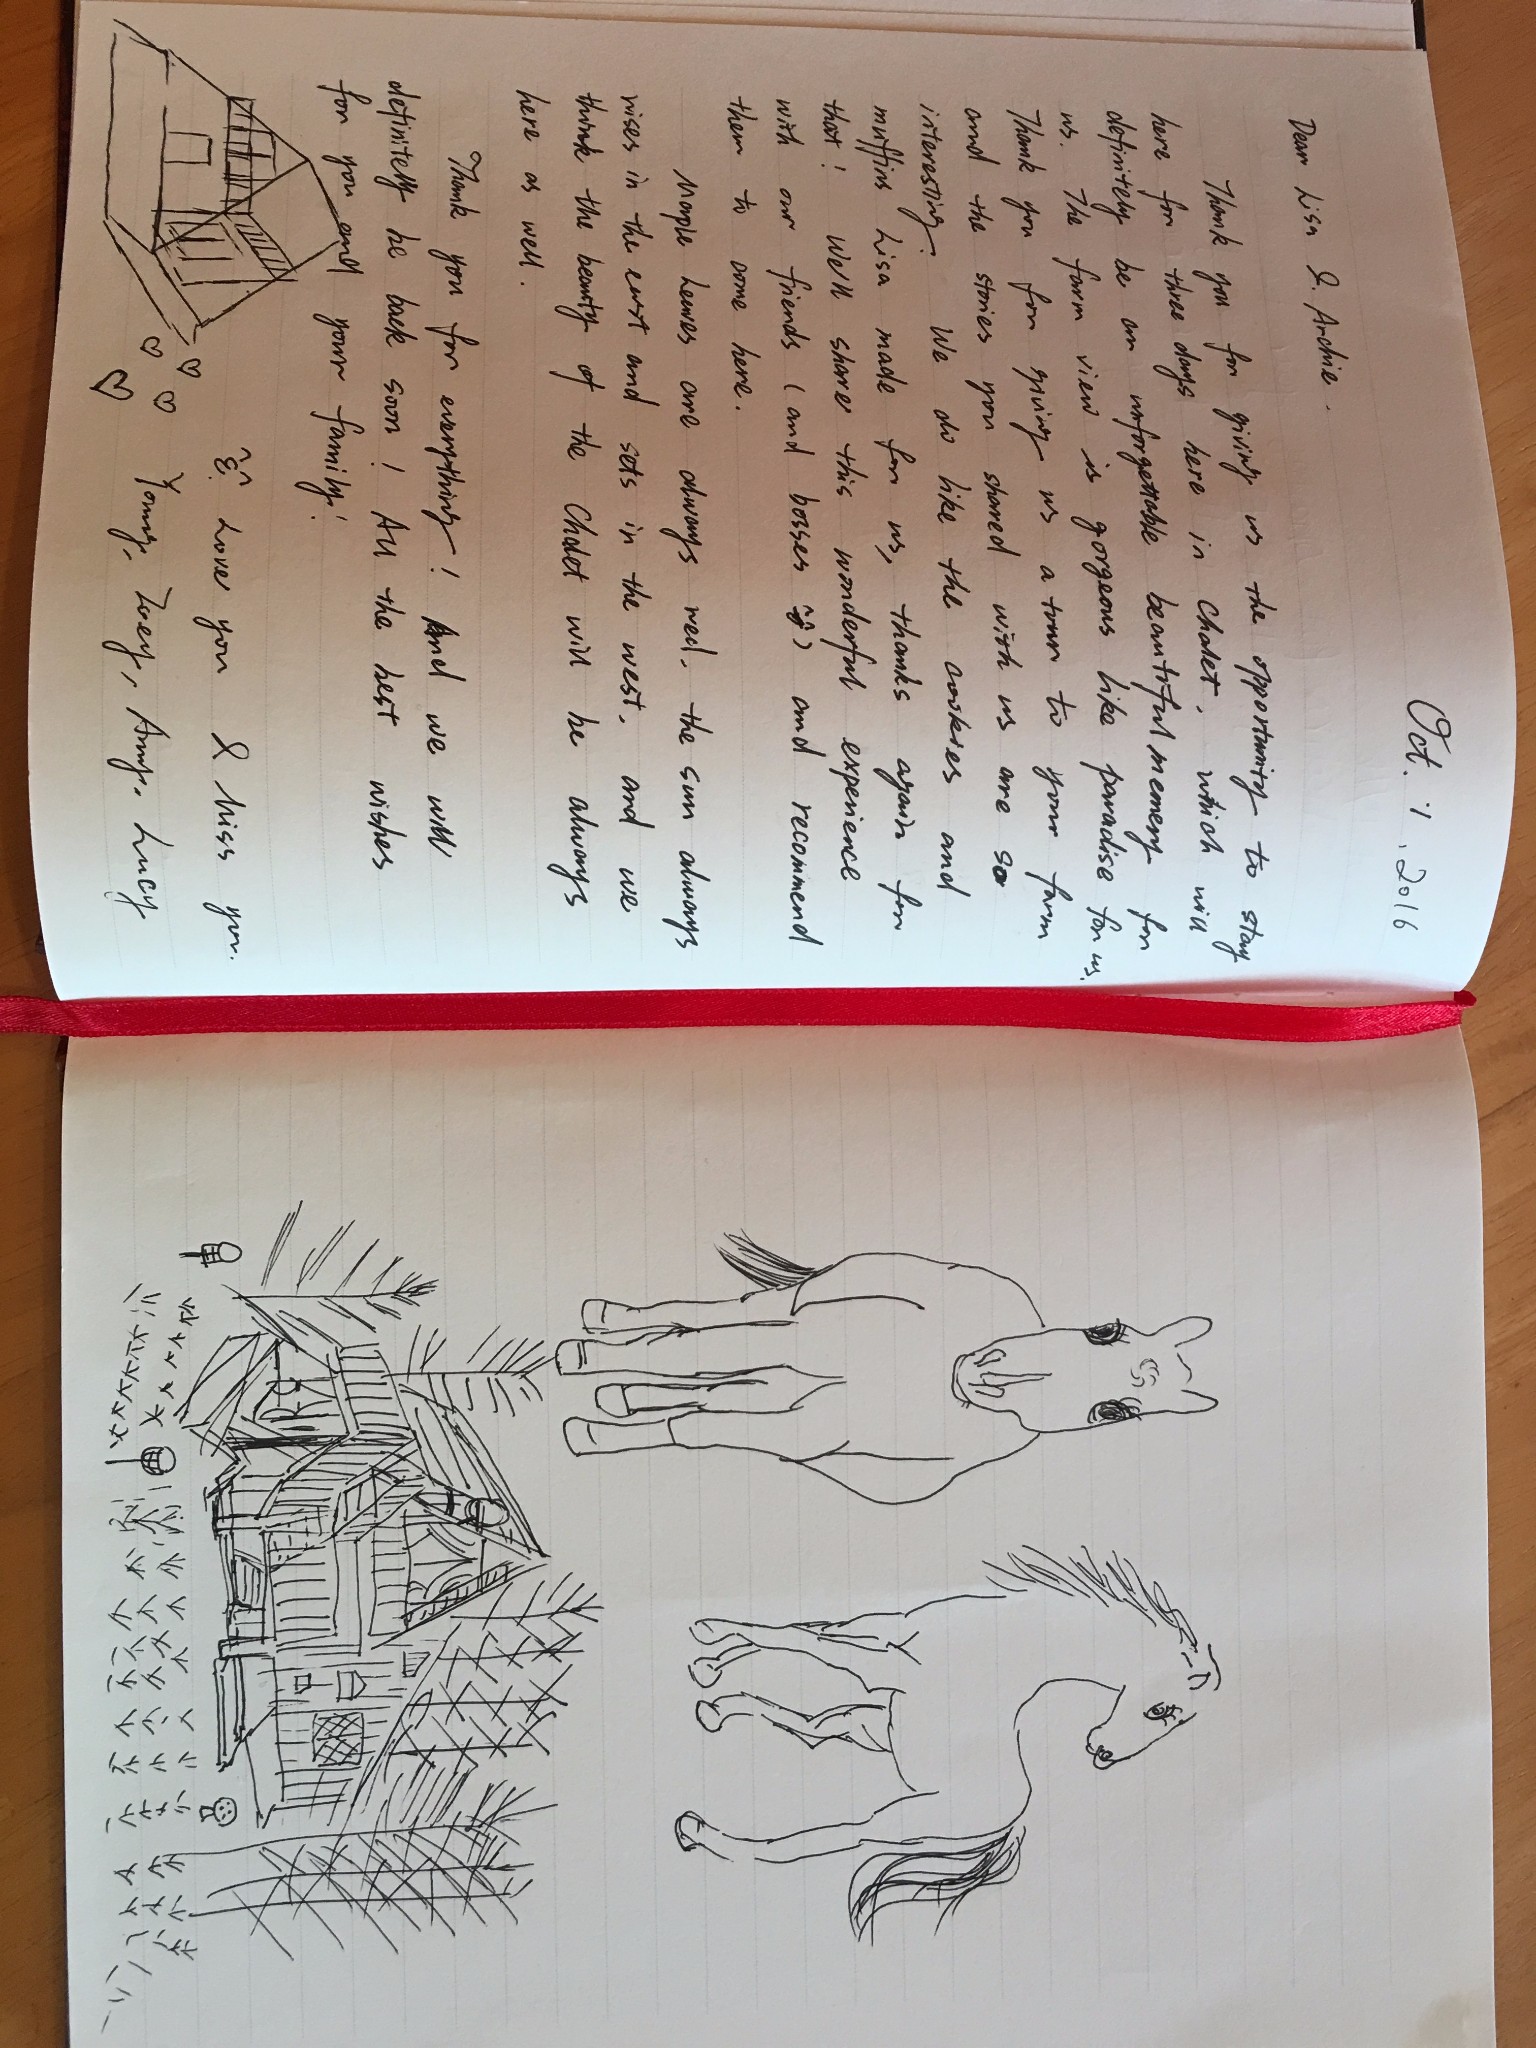 Oct. 1. 2016
Dear Lisa & Archie.
Thank you for giving us the opportunity to stay
here for three days here in Chalet, which will
definitely be an unforgettable beautiful memery for
us. The farm view is gorgeous like paradise for us.
Thank you for giving us a tour to your farm
and the stories you shared with us are so
interesting. We do like the cookies and
muffins Lisa made for us, thanks again for
that! We'll share this wonderful experience
with our friends (and bosses) and recommend
them to come here.
Maple leaves are always red, the sun always
rises in the east and sets in the west, and we
think the beauty of the Chalet will be always
here as well.
Thank you for everything! And we will
definitely be back soon! All the best wishes
for you and your family!
Love you & Miss you.
Young, Zoey, Amy, Lucy